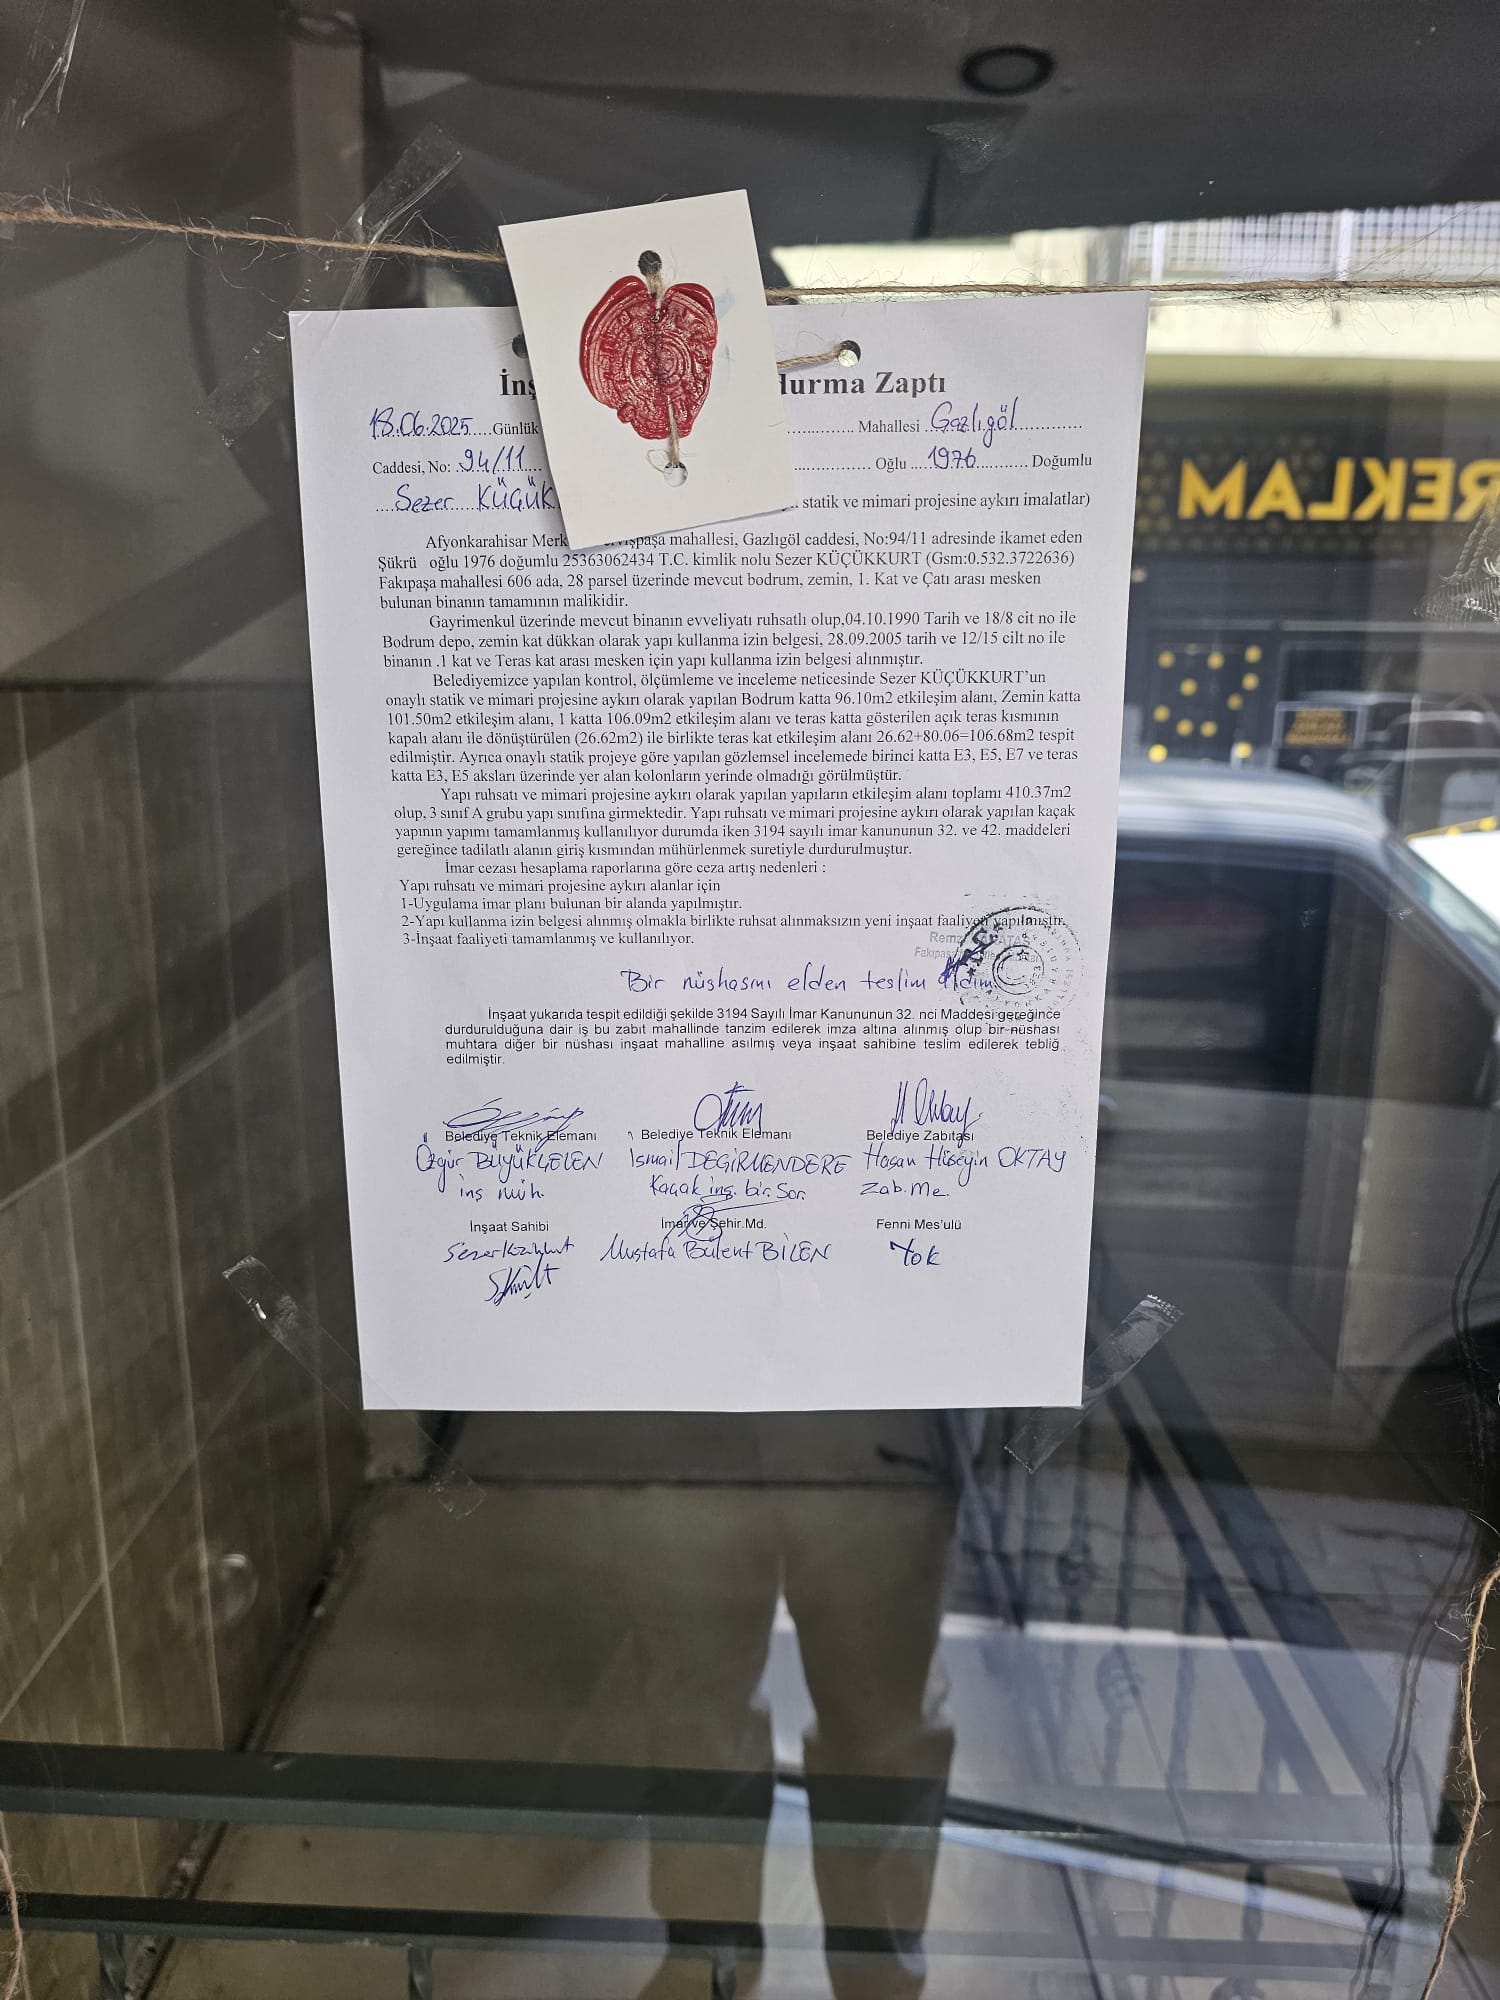 İnş durma Zaptı
18.06.2025....Günlük ........... Mahallesi .Gazlıgöl................
Caddesi, No: .94/11.... .................. Oğlu ....1976........... Doğumlu
....Sezer.....KÜÇÜK statik ve mimari projesine aykırı imalatlar)
Afyonkarahisar Merk vişpaşa mahallesi, Gazlıgöl caddesi, No:94/11 adresinde ikamet eden
Şükrü oğlu 1976 doğumlu 25363062434 T.C. kimlik nolu Sezer KÜÇÜKKURT (Gsm:0.532.3722636)
Fakıpaşa mahallesi 606 ada, 28 parsel üzerinde mevcut bodrum, zemin, 1. Kat ve Çatı arası mesken
bulunan binanın tamamının malikidir.
Gayrimenkul üzerinde mevcut binanın evveliyatı ruhsatlı olup,04.10.1990 Tarih ve 18/8 cit no ile
Bodrum depo, zemin kat dükkan olarak yapı kullanma izin belgesi, 28.09.2005 tarih ve 12/15 cilt no ile
binanın .1 kat ve Teras kat arası mesken için yapı kullanma izin belgesi alınmıştır.
Belediyemizce yapılan kontrol, ölçümleme ve inceleme neticesinde Sezer KÜÇÜKKURT'un
onaylı statik ve mimari projesine aykırı olarak yapılan Bodrum katta 96.10m2 etkileşim alanı, Zemin katta
101.50m2 etkileşim alanı, 1 katta 106.09m2 etkileşim alanı ve teras katta gösterilen açık teras kısmının
kapalı alanı ile dönüştürülen (26.62m2) ile birlikte teras kat etkileşim alanı 26.62+80.06=106.68m2 tespit
edilmiştir. Ayrıca onaylı statik projeye göre yapılan gözlemsel incelemede birinci katta E3, E5, E7 ve teras
katta E3, E5 aksları üzerinde yer alan kolonların yerinde olmadığı görülmüştür.
Yapı ruhsatı ve mimari projesine aykırı olarak yapılan yapıların etkileşim alanı toplamı 410.37m2
olup, 3 sınıf A grubu yapı sınıfına girmektedir. Yapı ruhsatı ve mimari projesine aykırı olarak yapılan kaçak
yapının yapımı tamamlanmış kullanılıyor durumda iken 3194 sayılı imar kanununun 32. ve 42. maddeleri
gereğince tadilatlı alanın giriş kısmından mühürlenmek suretiyle durdurulmuştur.
İmar cezası hesaplama raporlarına göre ceza artış nedenleri :
Yapı ruhsatı ve mimari projesine aykırı alanlar için
1-Uygulama imar planı bulunan bir alanda yapılmıştır.
2-Yapı kullanma izin belgesi alınmış olmakla birlikte ruhsat alınmaksızın yeni inşaat faaliyeti yapılmıştır.
3-İnşaat faaliyeti tamamlanmış ve kullanılıyor.
Bir nüshasını elden teslim aldım.
İnşaat yukarıda tespit edildiği şekilde 3194 Sayılı İmar Kanununun 32. nci Maddesi gereğince
durdurulduğuna dair iş bu zabıt mahallinde tanzim edilerek imza altına alınmış olup bir nüshası
muhtara diğer bir nüshası inşaat mahalline asılmış veya inşaat sahibine teslim edilerek tebliğ
edilmiştir.
Belediye Teknik Elemanı Belediye Teknik Elemanı Belediye Zabıtası
Özgür BÜYÜKÇELEN İsmail DEGİRMENDERE Hasan Hüseyin OKTAY
inş müh. Kaçak inş. bir. Sor. Zab. Me.
İnşaat Sahibi İmar ve Şehir.Md. Fenni Mes'ulü
Sezer Küçükkurt Mustafa Bülent BİLEN Yok
REKLAM